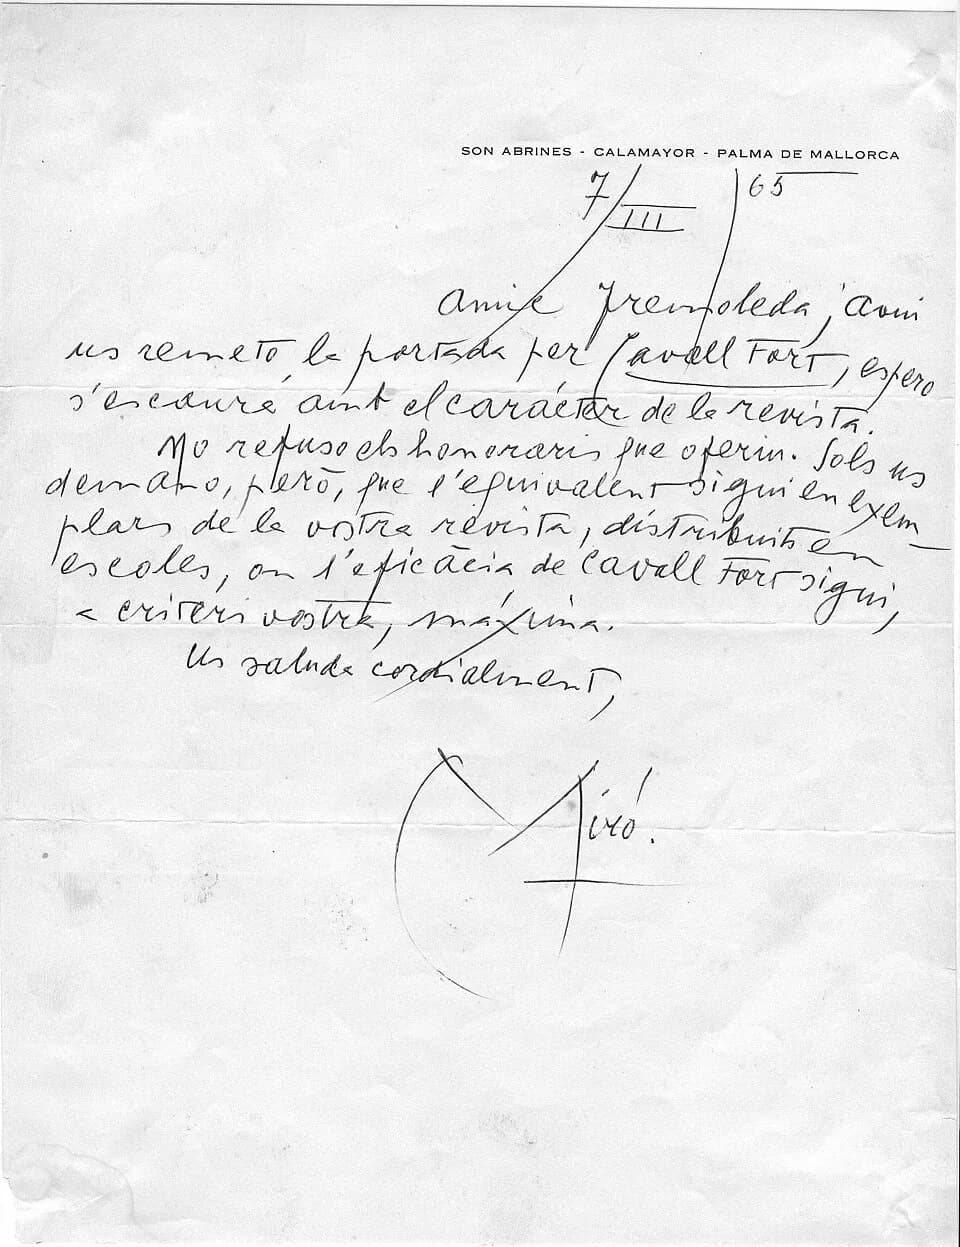 SON ABRINES - CALAMAYOR - PALMA DE MALLORCA
7/III/65
Amic Tremoleda, avui
us remeto la portada per Cavall Fort, espero
s'escaurá amb el carácter de la revista.
No refuso els honoraris que oferiu. Sols us
demano, però, que l'equivalent sigui en exem-
plars de la vostra revista, distribuits en
escoles, on l'eficàcia de Cavall Fort sigui,
a criteri vostre, máxima.
Us saluda cordialment,
Miró.